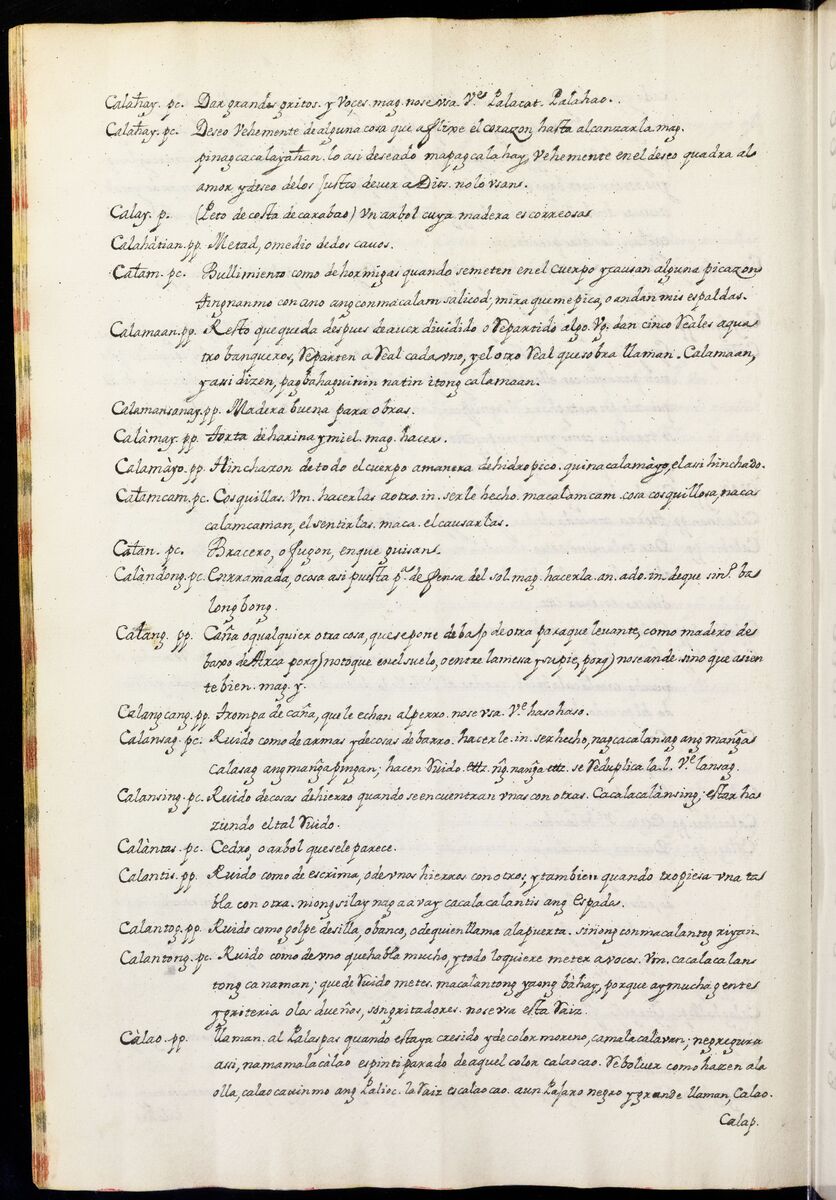 Calahay. pc. Dar grandes gritos. y Voçes. mag. nose vsa. Ve. Palacat. Palahao.
Calahay. pc. Deseo Vehemente de alguna cosa que aflixe el corazon hasta alcanzarla. mag.
pinagcacalayahan. lo asi deseado mapagcalahay, Vehemente en el deseo quadra al
amor y deseo delos Justos de ver a Dios. nolo vsans.
Calay. p. (Peto de costa de carabao) Vn arbol cuya madera es correosa
Calahátian. pp. Metad, o medio de dos cauos.
Calam. pc. Bullimiento como de hormigas quando se meten en el cuerpo y causan alguna picazon
tingnan mo con ano ang conmacalam sa licod, mira que me pica, o andan mis espaldas.
Calamaan. pp. Resto que queda despues de aver dividido o Repartido algo. Vg. dan cinco Reales a qua
tro banqueros, Reparten a Real cada vno, y el otro Real que sobra llaman. Calamaan,
y asi dizen, pagbahaguinin natin itong calamaan.
Calamansanay. pp. Madera buena para obras.
Calàmay. pp. Torta de harina y miel. mag. hacer.
Calamàyo. pp. Hinchazon de todo el cuerpo a manera de hidropico. quinacalamàyo, el asi hinchado.
Calamcam. pc. Cosquillas. Vm. hacerlas a otro. in. ser le hecho. macalamcam. cosa cosquillosa, nacas
calamcaman, el sentirlas. maca. el causarlas.
Calan. pc. Bracero, o fugon, en que guisans.
Calàndong. pc. Enrramada, o cosa asi puesta pa. defensa del sol. mag. hacerla. an. ado. in. de que sinP. ba
longbong.
Calang. pp. Caña o qualquier otra cosa, que se pone debajo de otra para que levante, como madero de
baxo de Arca porq) no toque en el suelo, o entre la mesa y su pie, porq) no se ande. sino que asien
te bien. mag. y.
Calangcang. pp. Trompa de caña, que le echan al perro. nose vsa. Ve. hasohaso.
Calansag. pc. Ruido como de armas y de cosas de barro. hacerle. in. ser hecho, nagcacalansag ang manga
calasag ang manga pingan; hacen Ruido. se Reduplica la. l. Ve. lansag.
Calansing. pc. Ruido de cosas de hierro quando se encuentran vnas con otras. Cacalacalànsing; estar ha
ziendo el tal Ruido.
Calàntas. pc. Cedro, o arbol que se le parece.
Calantis. pp. Ruido como de escrima, o de vnos hierros con otros, y tambien quando tropiesa vna ta
bla con otra. niong silay nagaavay cacalacalantis ang Espada.
Calantog. pp. Ruido como golpe de silla, o banco, o de quien llama a la puerta. sinong conmacalantog riyan
Calantong. pc. Ruido como de vno que habla mucho, y todo lo quiere meter a voces. Vm. cacalacalan
tong ca naman; que de Ruido metes. macalàntong yaong bàhay, porque ay mucha gente
y griteria o los dueños, son gritadores. nose vsa esta Raiz.
Càlao. pp. llaman. al Palaspas quando esta ya cresido y de color moreno, camala calavan; negregura
asi, namamalacàlao es pinti parado de aquel color calaocao. Reboluer como hazen a la
olla, calaocauin mo ang Palioc. la Raiz es calaocao. a un Pajaro negro y grande llaman, Calao.
Calap.